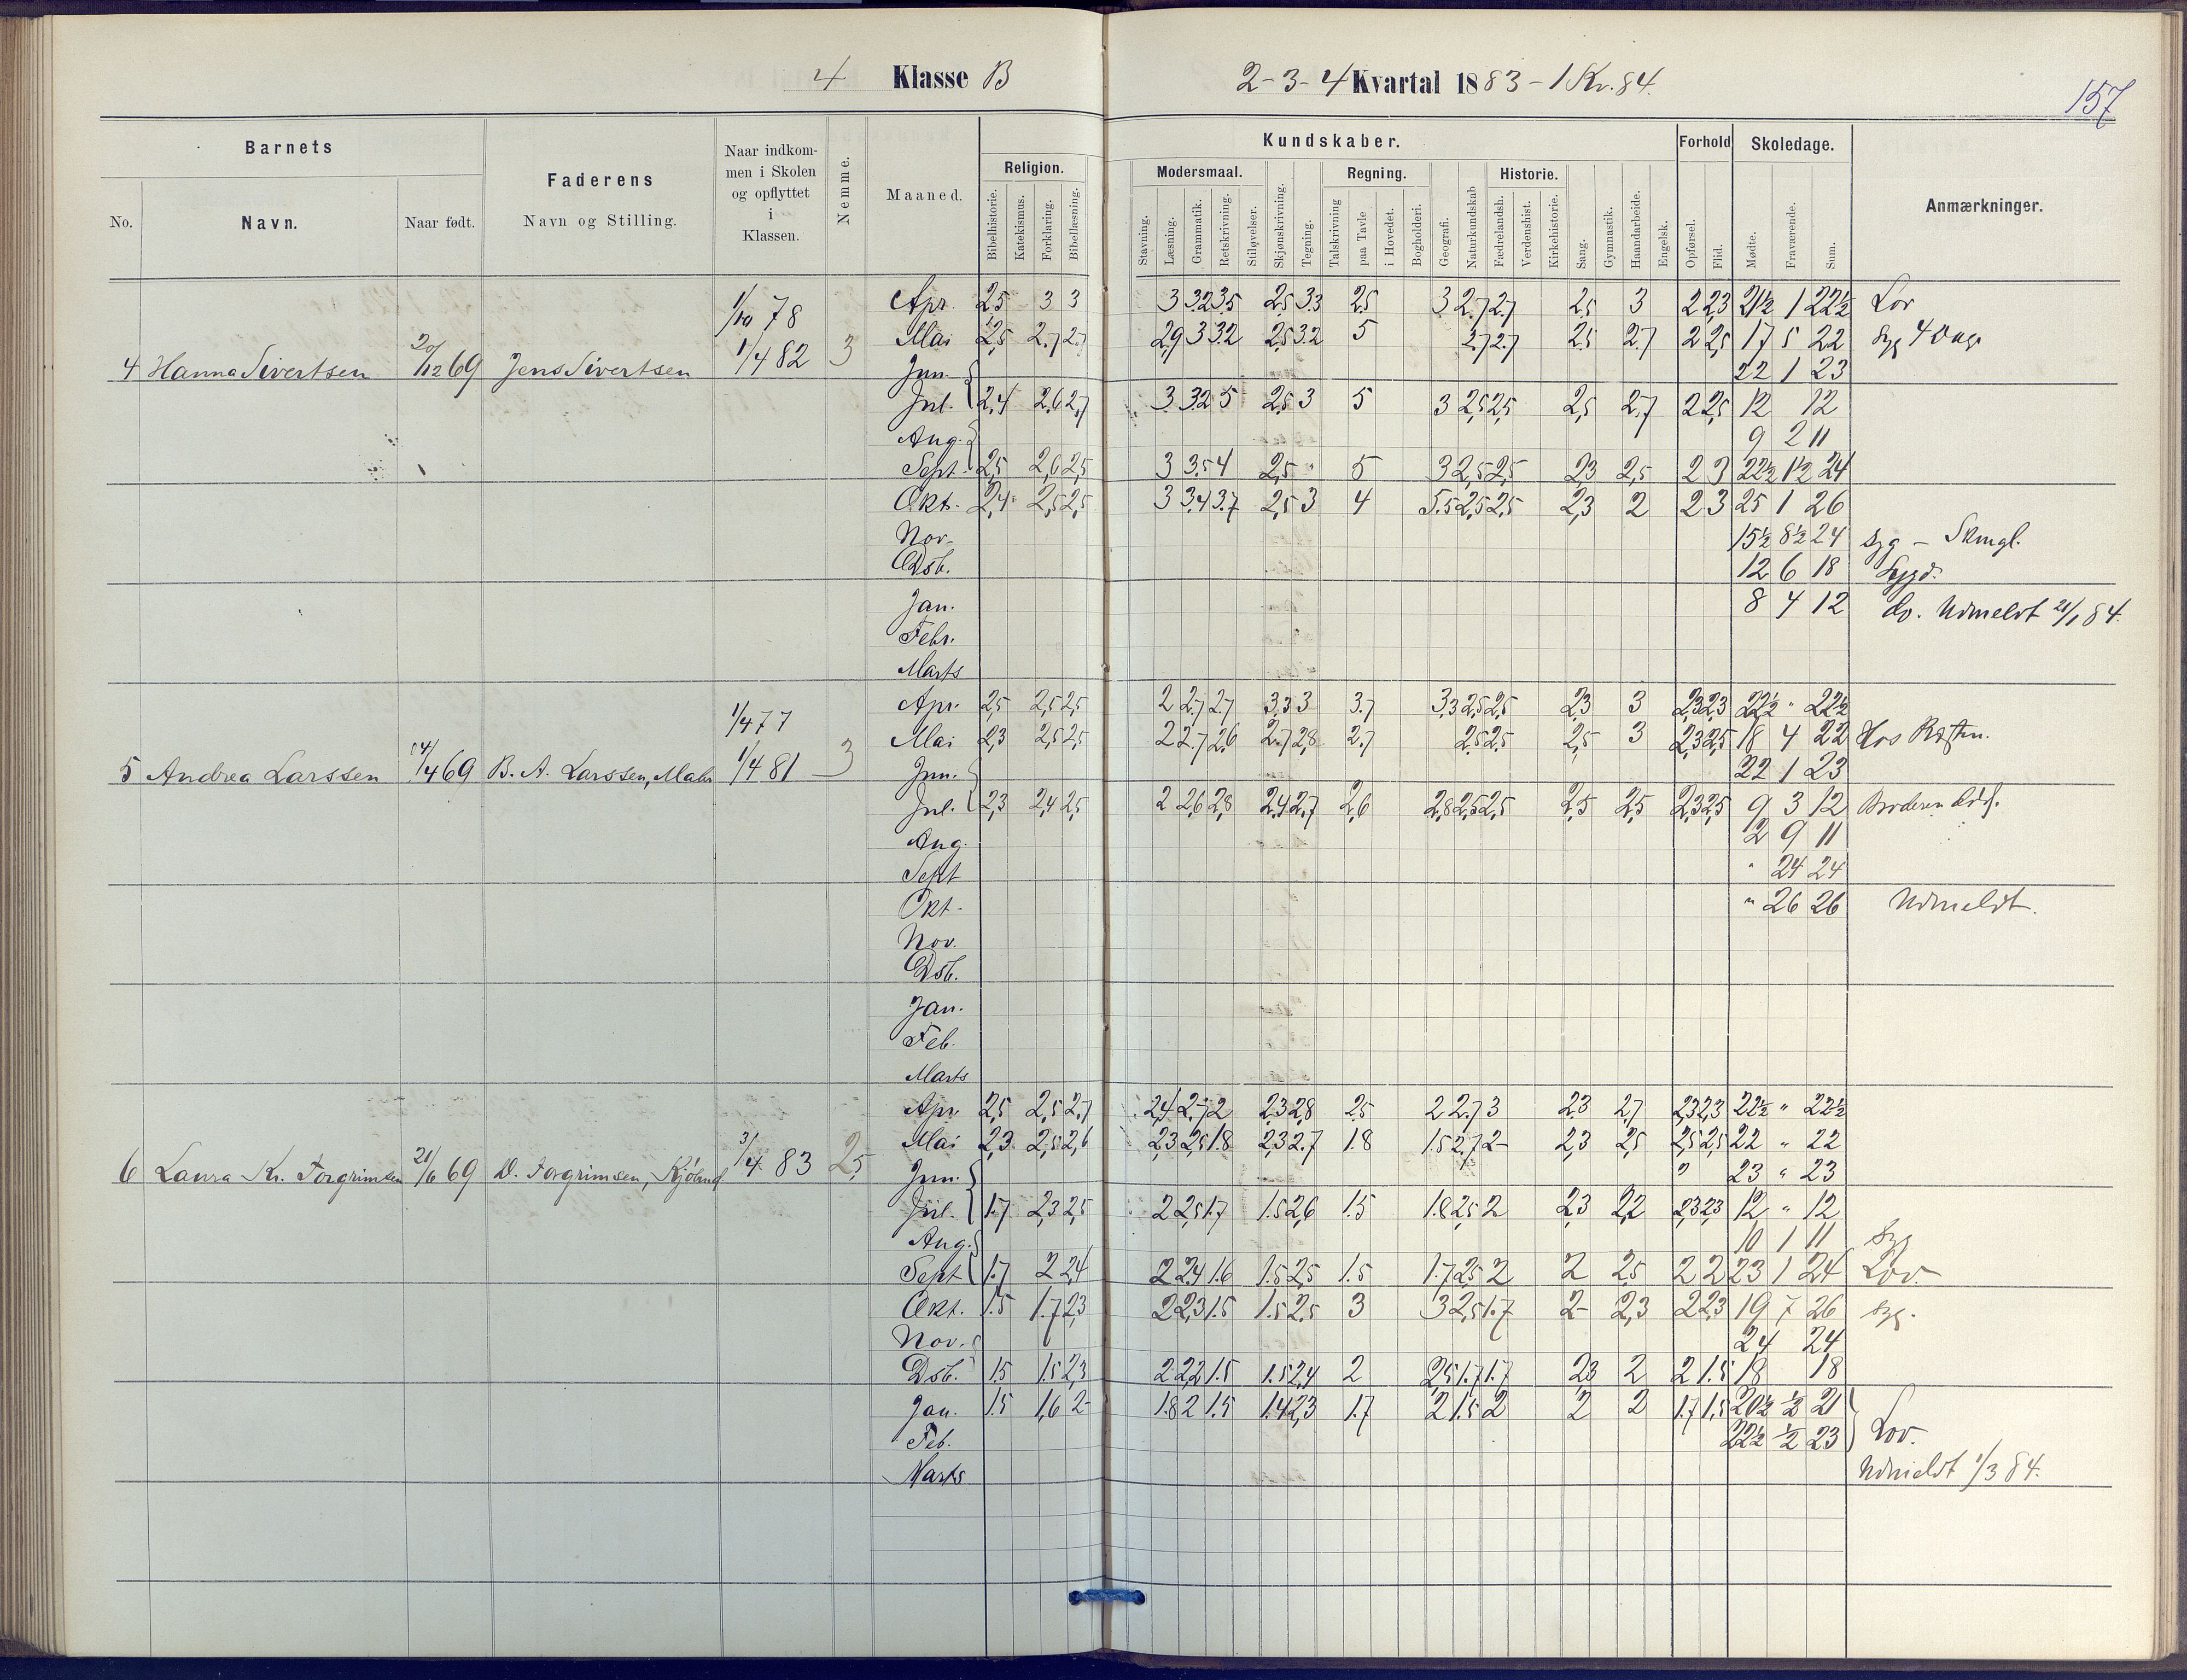 4 Klasse B
2-3-4 Kvartal 1883 - 1 Kv. 84.
157
Barnets
No.
Navn.
Naar født.
Faderens
Navn og Stilling.
Naar indkom-
men i Skolen
og opflyttet
i
Klassen.
Nemme.
Maaned.
Kundskaber.
Religion.
Bibelhistorie.
Katekismus.
Forklaring.
Bibellæsning.
Modersmaal.
Stavning.
Læsning.
Grammatik.
Retskrivning.
Stiløvelser.
Skjønskrivning.
Tegning.
Regning.
Talskrivning
paa Tavle
i Hovedet.
Bogholderi.
Geografi.
Naturkundskab
Historie.
Fædrelandsh.
Verdenshist.
Kirkehistorie.
Sang.
Gymnastik.
Haandarbeide.
Engelsk.
Forhold
Opførsel.
Flid.
Skoledage.
Mødte.
Fraværende.
Sum.
Anmærkninger.
4 Hanna Sivertsen 20/12 69 Jens Sivertsen 1/10 78 1/4 82 3
Apr. 2,5 3 3 3 3.2 3.5 2,5 3.3 2.5 3 2.7 2.7 2,5 3 2 2,3 21½ 1 22½ Lov
Mai 2,5 2.7 2.7 2,9 3 3.2 2,5 3.2 5 2.7 2.7 2.5 2.7 2 2,5 17 5 22 Syg 4 Dag.
Jun. 22 1 23
Jul. 2,4 2,6 2,7 3 3.2 5 2,5 3 5 3 2,5 2,5 2,5 2,7 2 2,5 12 12
Aug. 9 2 11
Sept. 2,5 2,6 2,5 3 3.5 4 2,5 " 5 3 2,5 2,5 2,3 2,5 2 3 22½ 1½ 24
Okt. 2,4 2,5 2,5 3 3,4 3.7 2,5 3 4 5.5 2,5 2,5 2,3 2 2 3 25 1 26
Nov. 15½ 8½ 24 syg
Dsb. 12 6 18 Sygd.
Jan. 8 4 12 do. Udmeldt 21/1 84.
Febr.
Marts
5 Andrea Larssen 14/4 69 B. A. Larssen, Maler 1/4 77 1/4 81 3
Apr. 2,5 2,5 2,5 2 2.7 2.7 3.3 3 3.7 3,3 2,5 2,5 2,3 3 2,3 2,3 22½ " 22½
Mai 2,3 2,5 2,5 2 2.7 2,6 2.7 2,8 2.7 2,5 2,5 2,5 3 2,3 2,5 18 4 22 Hos Præsten.
Jun. 22 1 23
Jul. 2,3 2,4 2,5 2 2,6 2,8 2,4 2.7 2,6 2,8 2,5 2,5 2,5 2,5 2,3 2,5 9 3 12 Broderen
Aug. 2 9 11
Sept " 24 24
Okt. " 26 26 Udmeldt.
Nov.
Dsb.
Jan.
Feb.
Marts
6 Laura Kr. Torgrimsen 21/6 69 D. Torgrimsen, Kjøbmd. 3/4 83 2,5
Apr 2,5 2,5 2,7 2,4 2.7 2 2,3 2,8 2.5 2 2.7 3 2.3 2,7 2,3 2,3 22½ " 22½
Mai 2,3 2,5 2,6 2,3 2,5 1.8 2,3 2.7 1.8 1.5 2.7 2- 2,3 2,5 2,5 2,5 22 " 22
Jun. " 23 " 23
Jul. 1.7 2,3 2,5 2 2,5 1.7 1.5 2,6 1.5 1.8 2,5 2 2,3 2,2 2,3 2,3 12 " 12
Aug. 10 1 11 Syg
Sept 1.7 2 2,4 2 2,4 1.6 1.5 2,5 1.5 1.7 2,5 2 2 2,5 2 2 23 1 24 Lov.
Okt. 1.5 1.7 2,3 2 2,3 1.5 1.5 2,5 3 3 2,5 1.7 2- 2,3 2 2,3 19 7 26 syg.
Nov. 24 24
Dsb. 1.5 1.5 2,3 2 2,2 1.5 1.5 2,4 2 2,5 1.7 1.7 2,3 2 2 1.5 18 18
Jan. 1.5 1,6 2- 1.8 2 1.5 1.4 2,3 1.7 2 1.5 2 2 2 1.7 1,5 20½ ½ 21
Feb. 22½ ½ 23 Lov.
Marts Udmeldt 1/3 84.